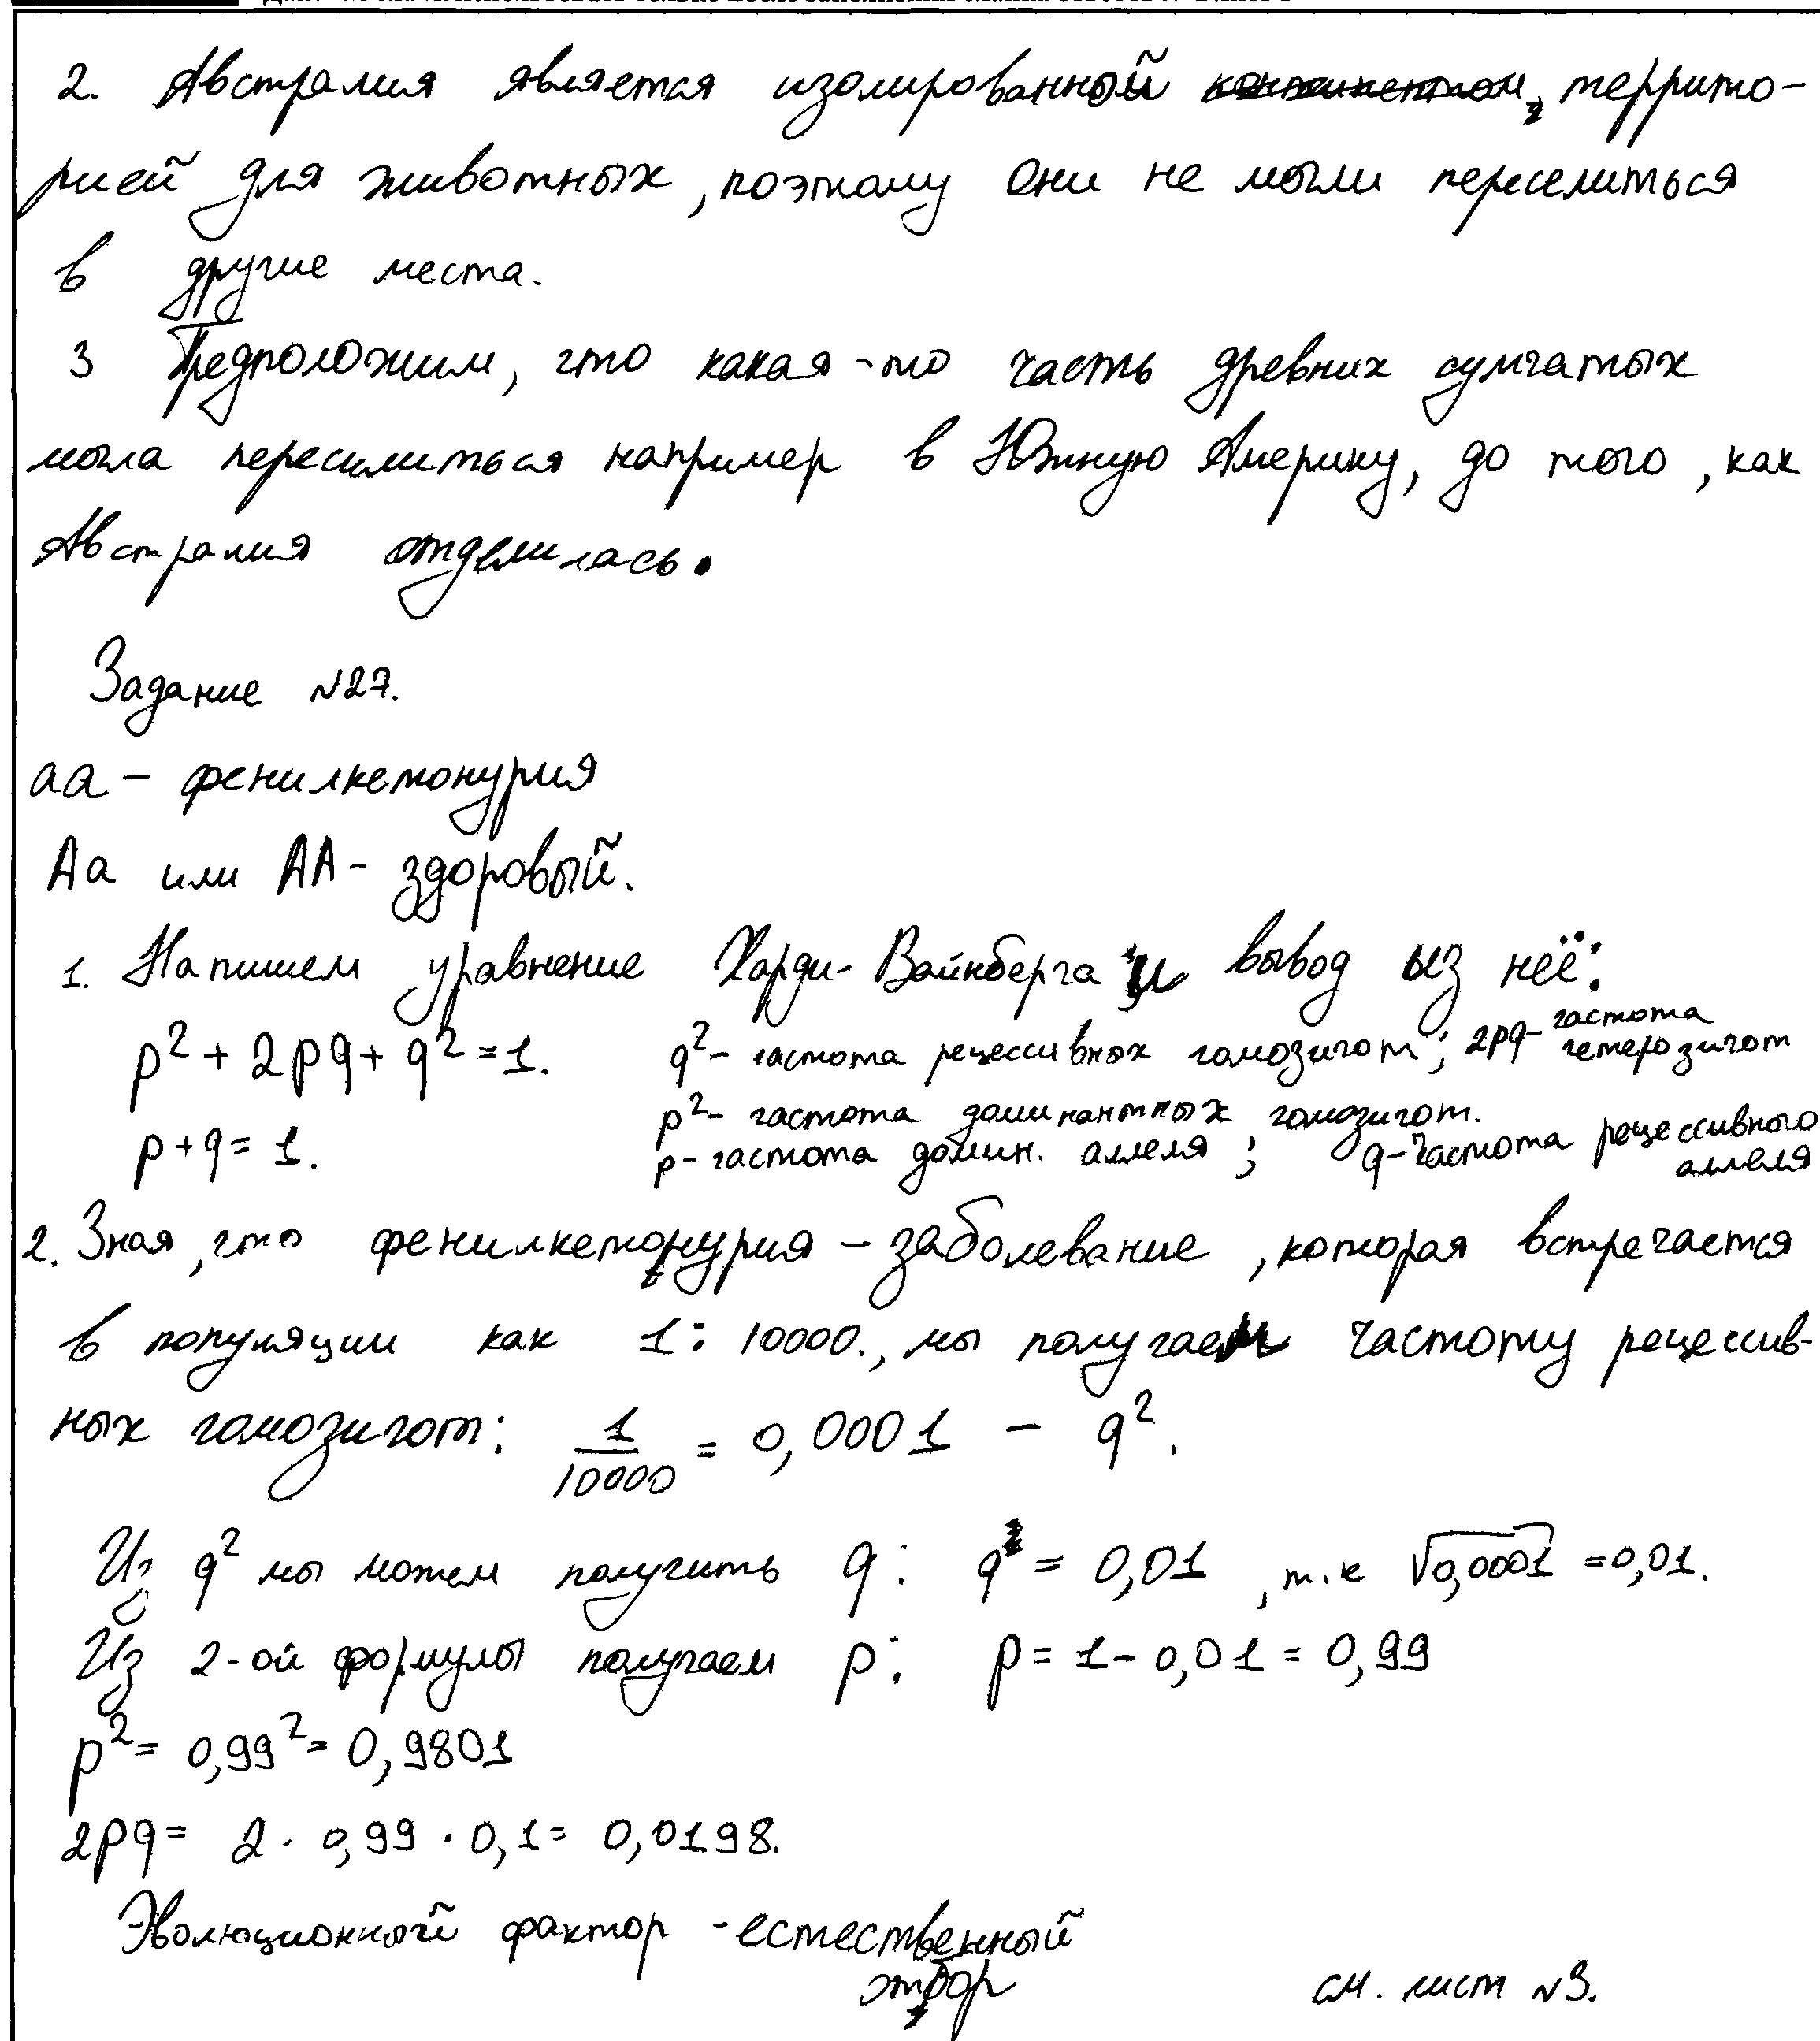 2. Австралия является изолированной континентом, террито-
рией для животных, поэтому они не могли переселиться
в другие места.
3 Предположим, что какая-то часть древних сумчатых
могла переселиться например в Южную Америку, до того, как
Австралия отделилась.
Задание №27.
аа - фенилкетонурия
Аа или АА - здоровый.
1. Напишем уравнение Харди-Вайнберга и вывод из неё:
p² + 2pq + q² = 1. q² - частота рецессивных гомозигот; 2pq - частота гетерозигот
p² - частота доминантных гомозигот.
p + q = 1. p - частота домин. аллеля; q - частота рецессивного аллеля
2. Зная, что фенилкетонурия - заболевание, которая встречается
в популяции как 1: 10000., мы получаем частоту рецессив-
ных гомозигот: 1/10000 = 0,0001 - q².
Из q² мы можем получить q: q = 0,01, т.к √0,0001 = 0,01.
Из 2-ой формулы получаем p: p = 1 - 0,01 = 0,99
p² = 0,99² = 0,9801
2pq = 2 · 0,99 · 0,1 = 0,0198.
Эволюционный фактор - естественный
отбор
см. лист №3.